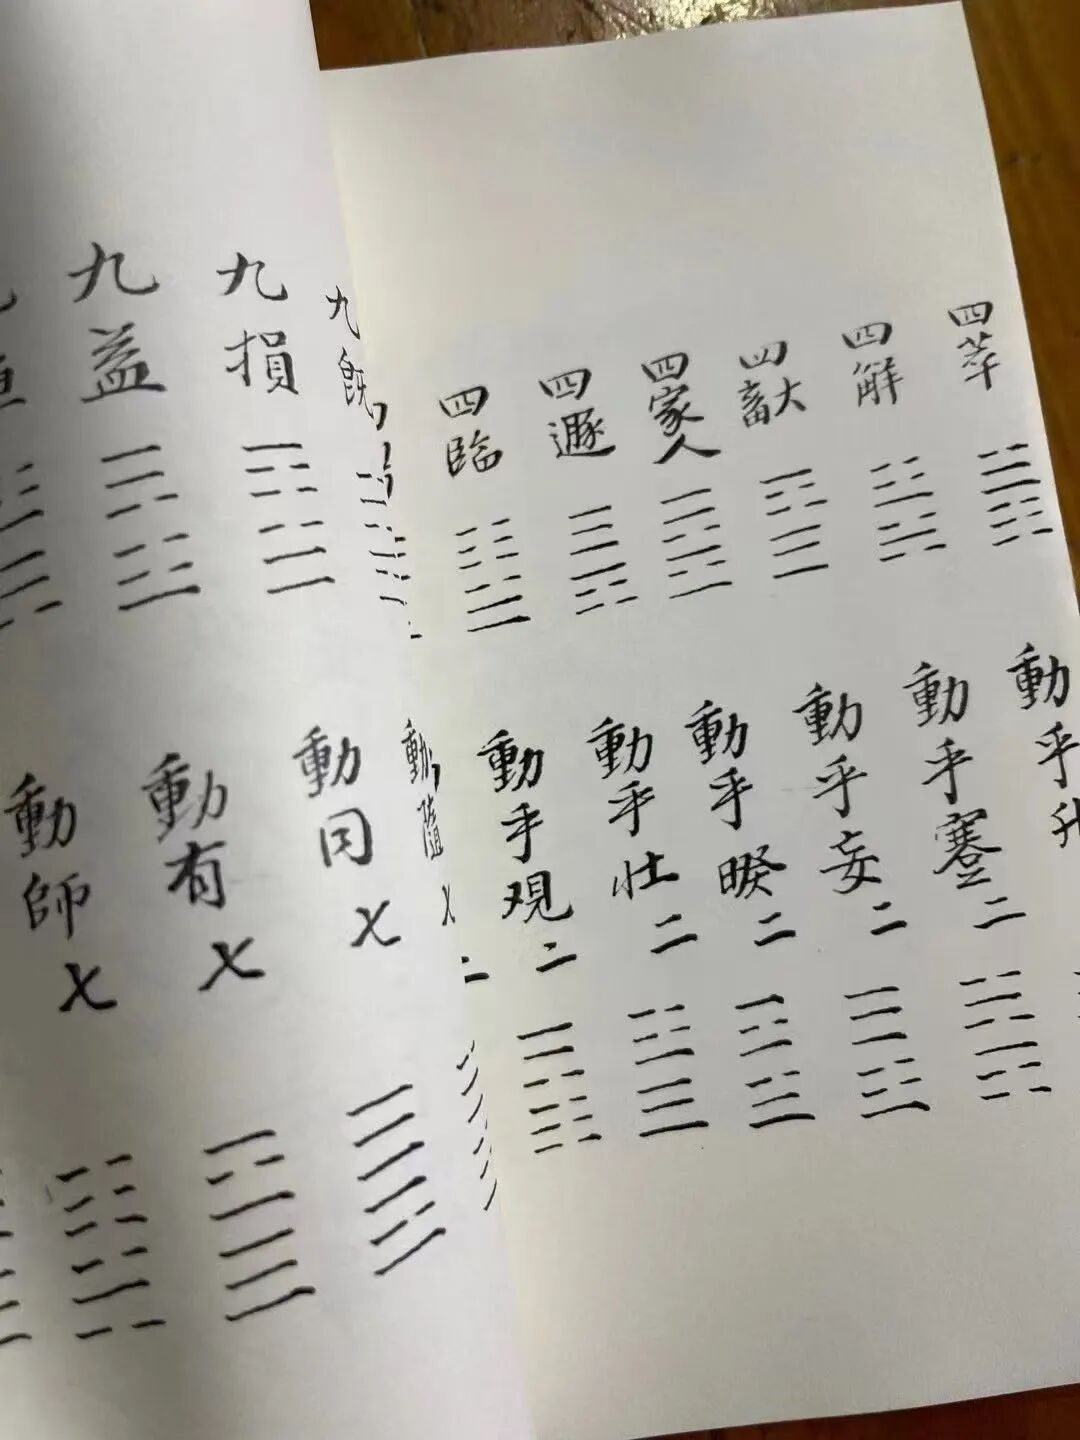 四萃
四解
四大畜
四家人
四遯
四臨
動乎升
動乎蹇二
動乎妄二
動乎睽二
動乎壯二
動乎观二
九既
九損
九益
動隨七
動同七
動有七
動師七